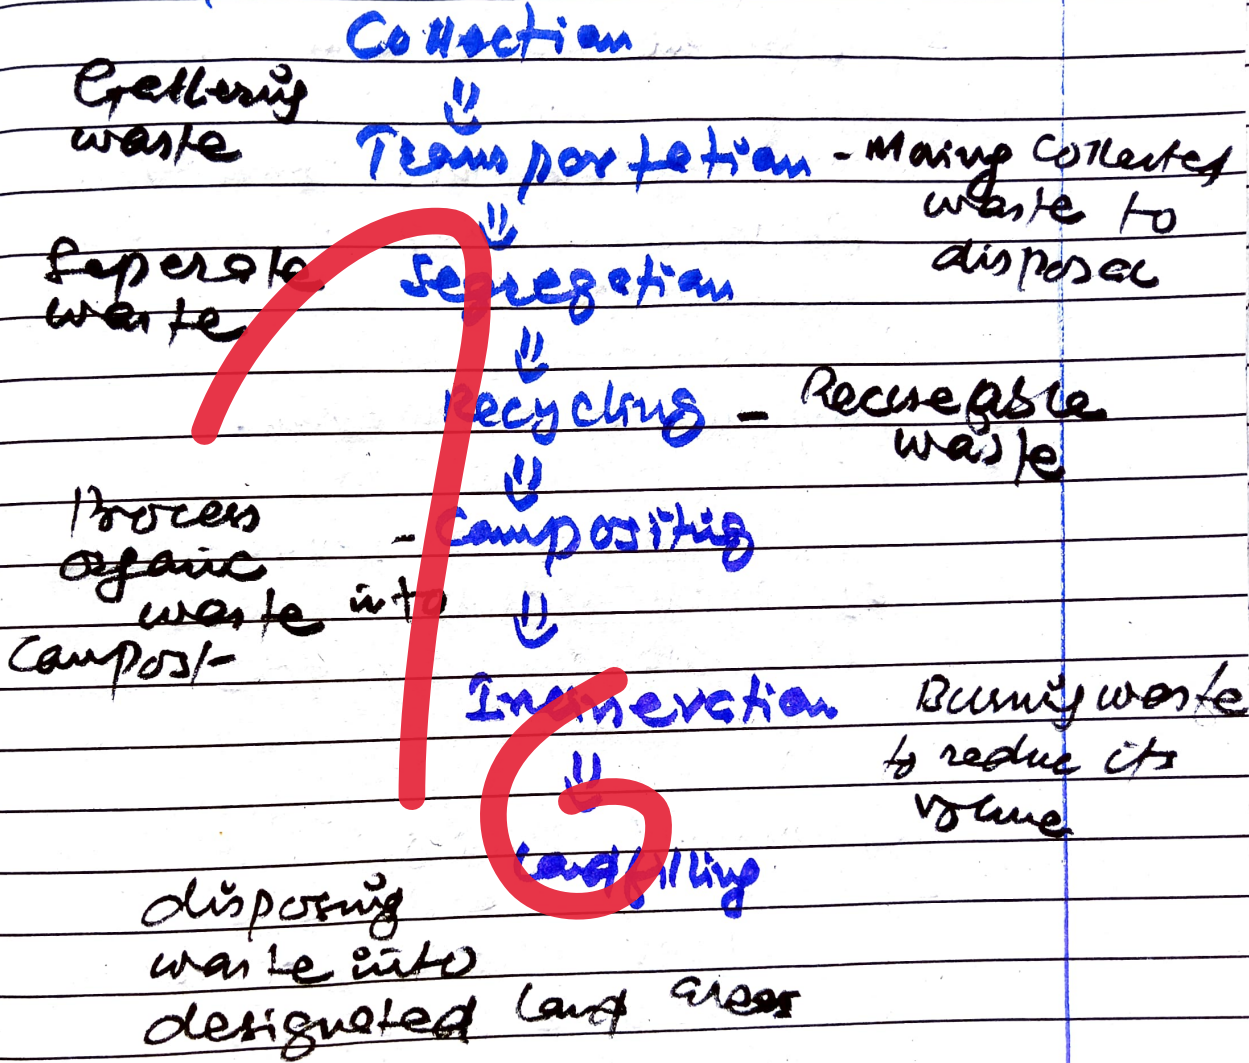 Collection
Gathering
waste
Transportation - Moving Collected
waste to
disposal
Seperate
waste
Segregation
Recycling - Recuseable
waste
Process
organic
waste into
compost
- Compositig
Incineration
Burning waste
to reduce its
volume
Landfilling
disposing
waste into
designated land areas
16